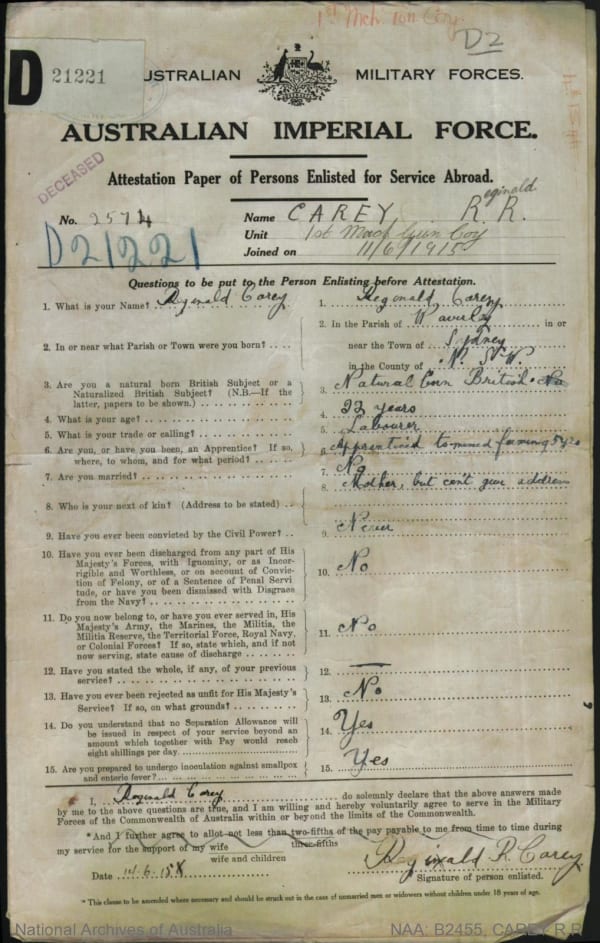 1st Mch. Gun Coy
D2
D 21221
AUSTRALIAN MILITARY FORCES.
AUSTRALIAN IMPERIAL FORCE.
DECEASED
Attestation Paper of Persons Enlisted for Service Abroad.
No. 2574 Name CAREY, R. R. Reginald
D21221
Unit 1st Mach Gun Coy
Joined on 11/6/1915
Questions to be put to the Person Enlisting before Attestation.
1. What is your Name? Reginald Carey 1. Reginald Carey
2. In or near what Parish or Town were you born? 2. In the Parish of Waverley in or
near the Town of Sydney
in the County of N. S. W.
3. Are you a natural born British Subject or a
Naturalized British Subject? (N.B.—If the
latter, papers to be shown.) 3. Natural born British
4. What is your age? 4. 22 years
5. What is your trade or calling? 5. Labourer
6. Are you, or have you been, an Apprentice? If so,
where, to whom, and for what period? 6. Apprenticed to farming 5 yrs
7. Are you married? 7. No
8. Who is your next of kin? (Address to be stated) 8. Mother, but can't give address
9. Have you ever been convicted by the Civil Power? 9. Never
10. Have you ever been discharged from any part of His
Majesty's Forces, with Ignominy, or as Incor-
rigible and Worthless, or on account of Convic-
tion of Felony, or of a Sentence of Penal Servi
tude, or have you been Dismissed with Disgrace
from the Navy? 10. No
11. Do you now belong to, or have you ever served in, His
Majesty's Army, the Marines, the Militia, the
Militia Reserve, the Territorial Force, Royal Navy,
or Colonial Forces? If so, state which, and if not
now serving, state cause of discharge 11. No
12. Have you stated the whole, if any, of your previous
service? 12. —
13. Have you ever been rejected as unfit for His Majesty's
Service? If so, on what grounds? 13. No
14. Do you understand that no Separation Allowance will
be issued in respect of your service beyond an
amount which together with Pay would reach
eight shillings per day. 14. Yes
15. Are you prepared to undergo inoculation against smallpox
and enteric fever? 15. Yes
I, Reginald Carey do solemnly declare that the above answers made
by me to the above questions are true, and I am willing and hereby voluntarily agree to serve in the Military
Forces of the Commonwealth of Australia within or beyond the limits of the Commonwealth.
*And I further agree to allot not less than two-fifths of the pay payable to me from time to time during
three-fifths
my service for the support of my wife
wife and children
Date 14.6.15 Reginald R. Carey
Signature of person enlisted.
*This clause to be amended where necessary and should be struck out in the case of unmarried men or widowers without children under 18 years of age.
National Archives of Australia NAA: B2455, CAREY R R